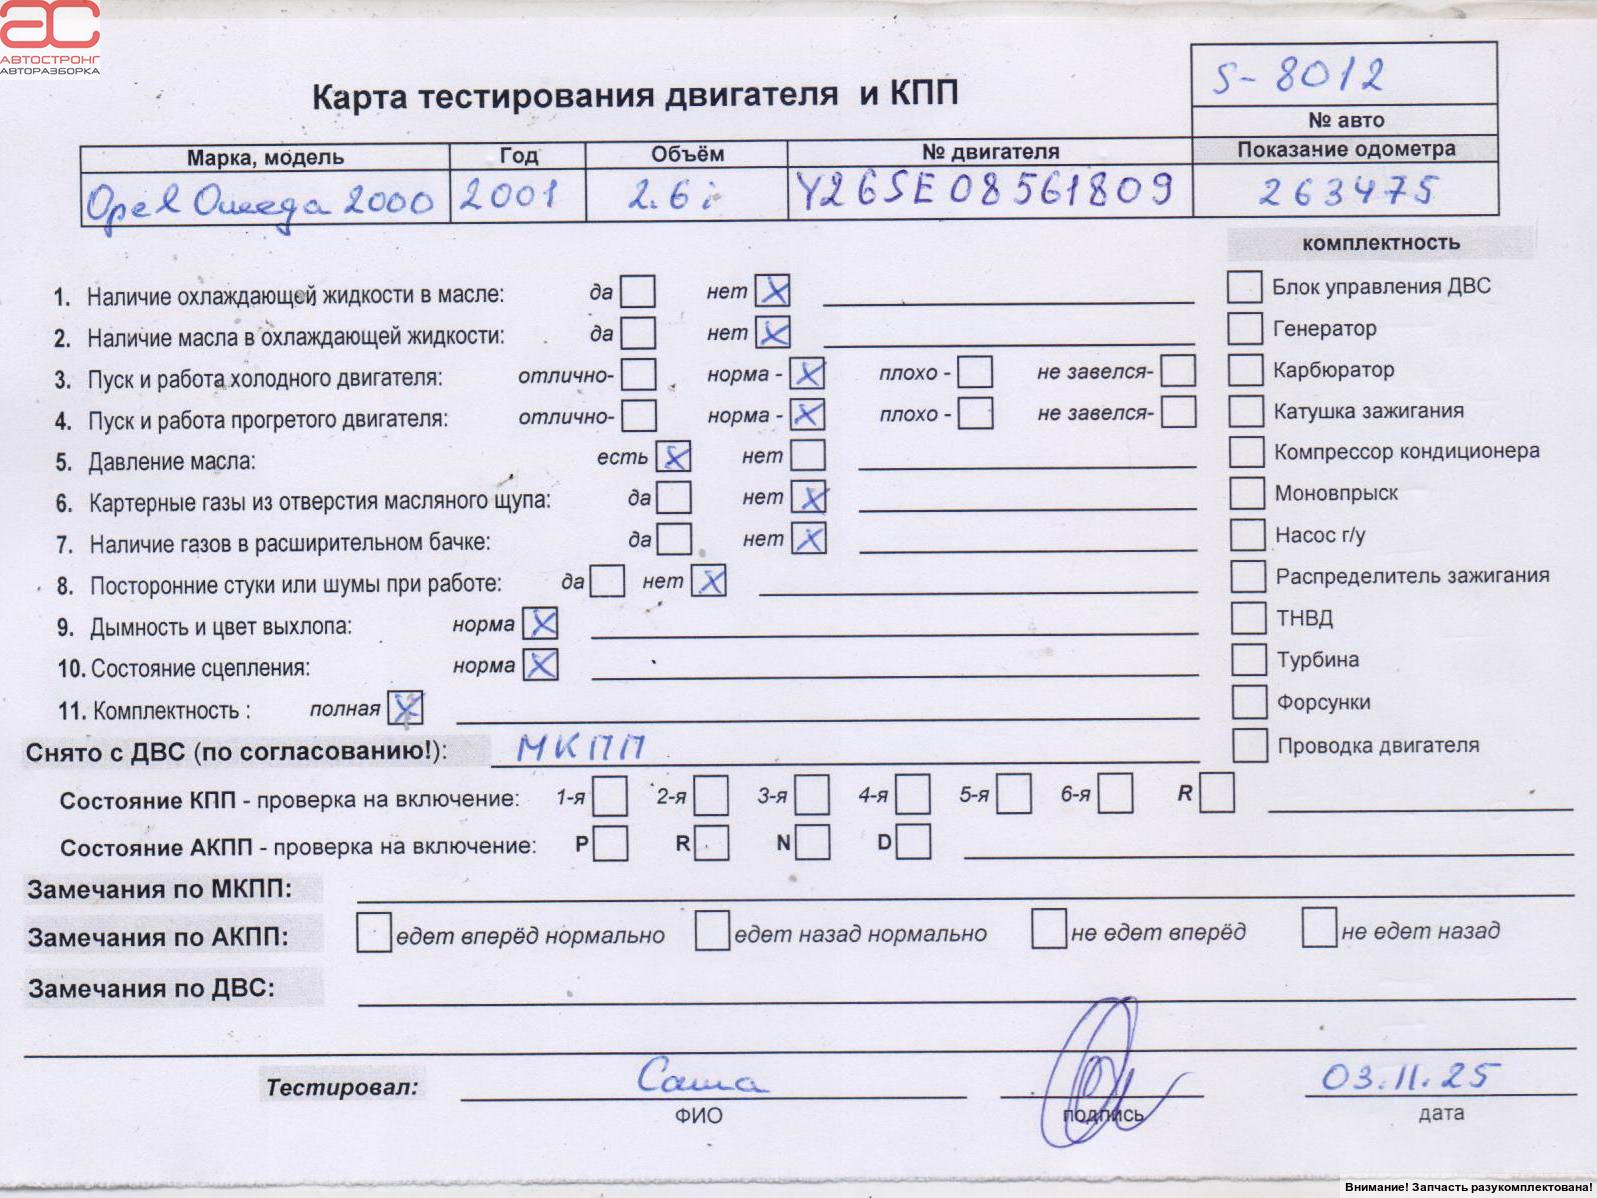 АС
АВТОСТРОНГ
АВТОРАЗБОРКА
S-8012
Карта тестирования двигателя и КПП
№ авто
Марка, модель Год Объём № двигателя Показание одометра
Opel Омега 2000 2001 2.6i Y26SE08561809 263475
комплектность
1. Наличие охлаждающей жидкости в масле: да нет X
Блок управления ДВС
2. Наличие масла в охлаждающей жидкости: да нет X
Генератор
3. Пуск и работа холодного двигателя: отлично- норма - X плохо - не завелся-
Карбюратор
4. Пуск и работа прогретого двигателя: отлично- норма - X плохо - не завелся-
Катушка зажигания
5. Давление масла: есть X нет
Компрессор кондиционера
6. Картерные газы из отверстия масляного щупа: да нет X
Моновпрыск
7. Наличие газов в расширительном бачке: да нет X
Насос г/у
8. Посторонние стуки или шумы при работе: да нет X
Распределитель зажигания
9. Дымность и цвет выхлопа: норма X
ТНВД
10. Состояние сцепления: норма X
Турбина
11. Комплектность : полная X
Форсунки
Снято с ДВС (по согласованию!): МКПП
Проводка двигателя
Состояние КПП - проверка на включение: 1-я 2-я 3-я 4-я 5-я 6-я R
Состояние АКПП - проверка на включение: P R N D
Замечания по МКПП:
Замечания по АКПП: едет вперёд нормально едет назад нормально не едет вперёд не едет назад
Замечания по ДВС:
Тестировал: Саша 03.11.25
ФИО подпись дата
Внимание! Запчасть разукомплектована!